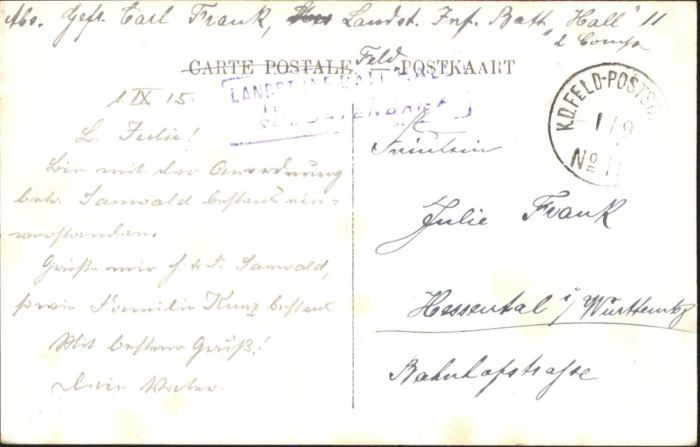 Abs. Gefr. Carl Frank, Landst. Inf. Batt. "Hall" 11
2 Comp
CARTE POSTALE Feld - POSTKAART
LANDST. INF. BATT. HALL
SOLDATENBRIEF
K.D. FELD-POSTST
1/9
No 11
1 IX 15.
L. Julie!
Bin mit der Anordnung
betr. Sanwald bestens ein-
verstanden.
Grüße mir H & F. Sanwald,
sowie Familie Kunz bestens
Mit bestem Gruß!
Dein Vater.
Fräulein
Julie Frank
Hessental i/Württembg
Bahnhofstrasse